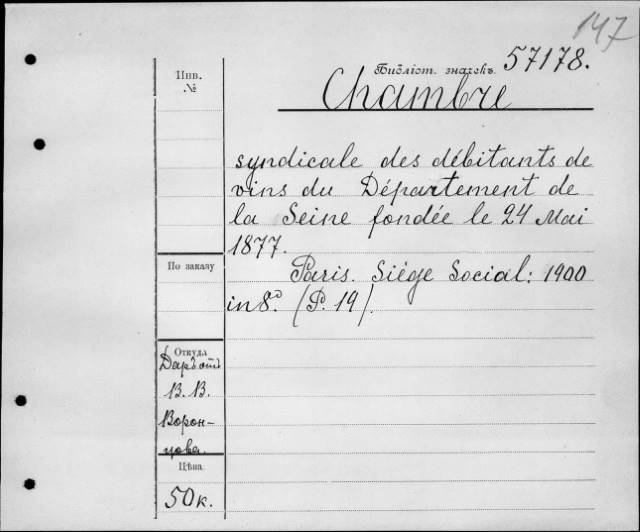 147
Инв.
№
Библіот. значекъ 57178.
Chambre
syndicale des débitants de
vins du Département de
la Seine fondée le 24 Mai
1877.
Paris. Siége Social: 1900
in 8º. (P. 19).
По заказу
Откуда
Даръ отъ
В. В.
Ворон-
цова.
Цѣна
50 к.